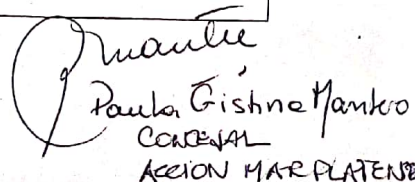 Paula Cistina Mantero
CONCEJAL
ACCION MARPLATENSE